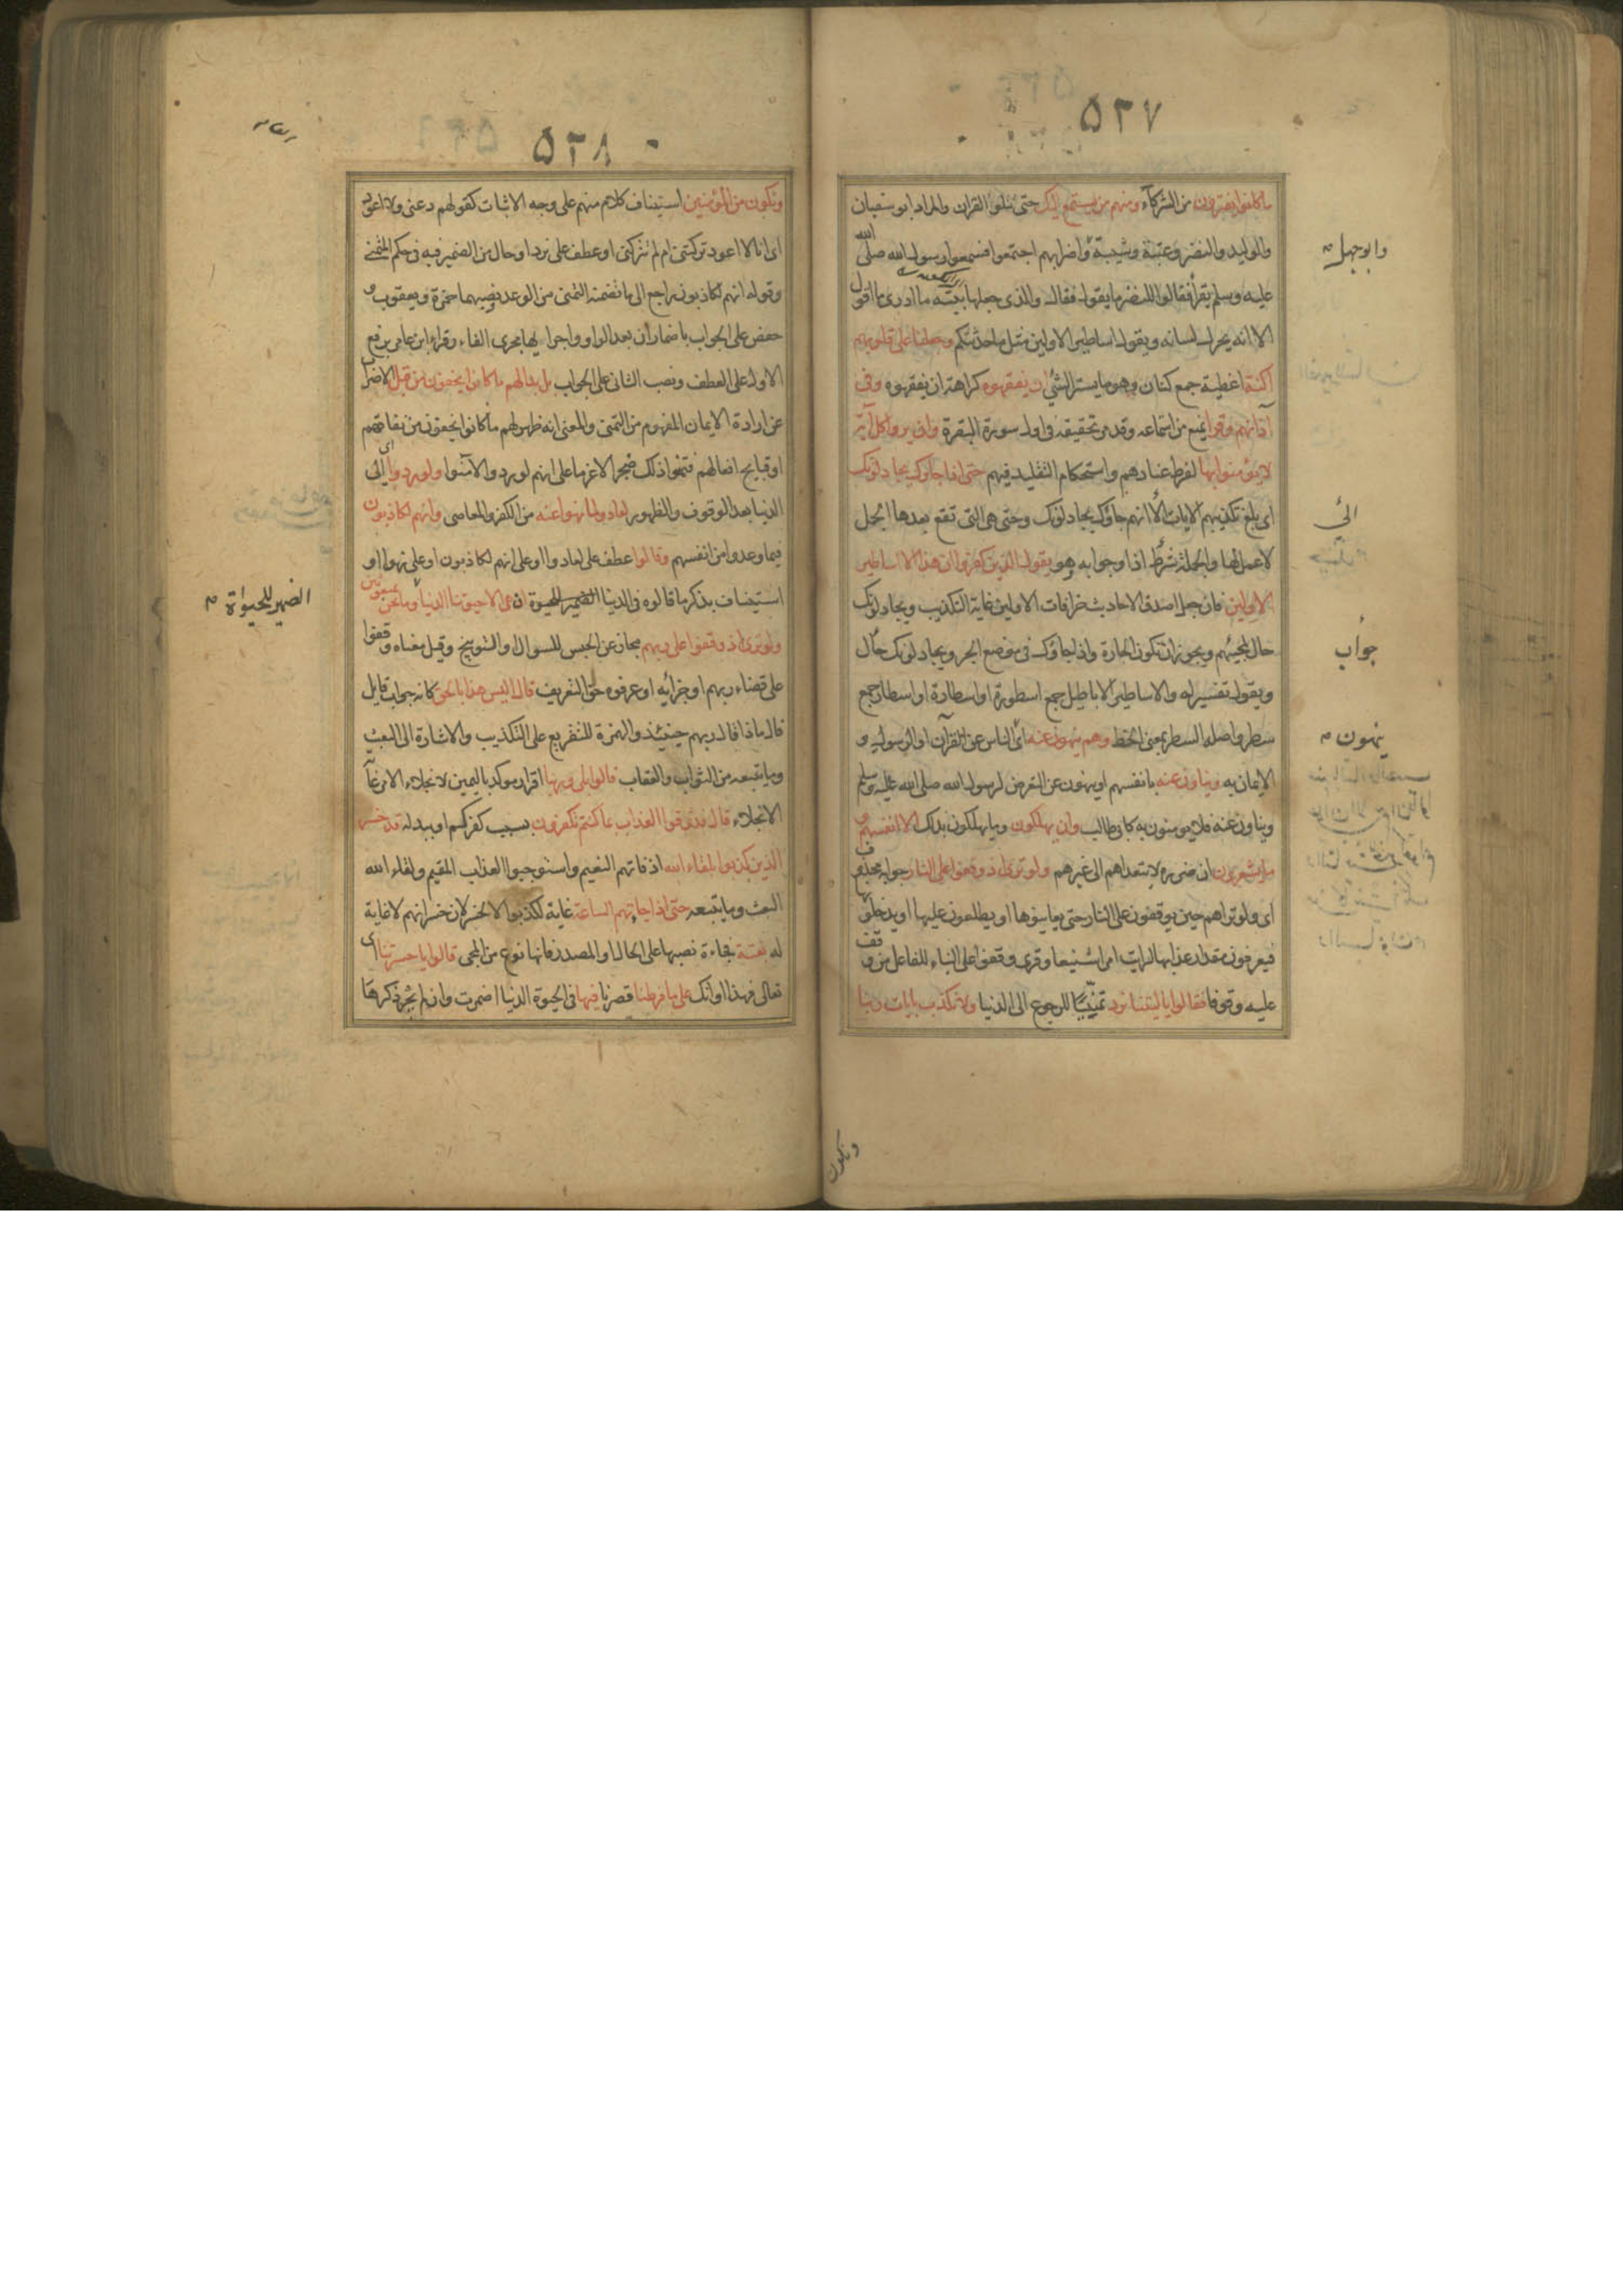 ٥٢٧
ما كانوا يفترون من الشركاء ومنهم من يستمع اليك حتى تتلوا القران والمراد ابو سفيان
والوليد والنضر وعتبة وشيبة واضرابهم اجتمعوا فسمعوا رسول الله صلى الله
وابو جهل
عليه وسلم يقرأ فقالوا للنضر ما يقول فقال والذى جعلها بيته ما ادرى ما اقول
الا انه يحرك لسانه ويقول اساطير الاولين مثل ما حدثتكم وجعلنا على قلوبهم
اكنة اغطية جمع كنان وهو ما يستر الشئ ان يفقهوه كراهة ان يفقهوه وفى
آذانهم وقرا يمنع من استماعه وقد مر تحقيقه فى اول سورة البقرة وان يروا كل آية
لا يؤمنوا بها لفرط عنادهم واستحكام التقليد فيهم حتى اذا جاؤك يجادلونك
اى بلغ تكذيبهم الايات الا انهم جاؤك يجادلونك وحتى هى التى تقع بعدها الجمل
الى
لا عمل لها والجملة شرط اذا وجوابه وهو يقول الذين كفروا ان هذا الا اساطير
الاولين فان جعل اصدق الاحاديث خرافات الاولين غاية التكذيب ويجادلونك
حال لمجيئهم ويجوز ان تكون الجارة واذا جاؤك فى موضع الجر ويجادلونك حال
جواب
ويقول تفسير له والاساطير الاباطيل جمع اسطورة او اسطارة او اسطار جمع
سطر واصله السطر بمعنى الخط وهم ينهون عنه اى الناس عن القرآن او الرسول و
ينهون
الايمان به ويناون عنه بانفسهم او ينهون عن التعرض لرسول الله صلى الله عليه وسلم
ويناون عنه فلا يومنون به كابى طالب وان يهلكون وما يهلكون بذلك الا انفسهم و
ما يشعرون ان ضرره لا يتعداهم الى غيرهم ولو ترى اذ وقفوا على النار جوابه محذوف
اى ولو تراهم حين يوقفون على النار حتى يعاينوها او يطلعون عليها او يدخلونها
فيعرفون مقدار عذابها لرايت امرا شنيعا وقرى وقفوا على البناء للفاعل من وقف
عليه وقوفا فقالوا يا ليتنا نرد تمنيا للرجوع الى الدنيا ولا نكذب بايات ربنا
ونكون
٥٢٨
ونكون من المؤمنين استيناف كلام منهم على وجه الاثبات كقولهم دعنى ولا اعود
اى انا لا اعود تركتنى ام لم تتركنى او عطف على نرد او حال من الضمير فيه فى حكم التمنى
وقوله انهم لكاذبون راجع الى ما تضمنه التمنى من الوعد ونصبهما حمزة ويعقوب و
حفص على الجواب باضمار ان بعد الواو واجرا لها مجرى الفاء وقراء ابن عامر برفع
الاول على العطف ونصب الثانى على الجواب بل بدا لهم ما كانوا يخفون من قبل الاضراب
عن ارادة الايمان المفهوم من التمنى والمعنى انه ظهر لهم ما كانوا يخفون من نفاقهم
او قبايح افعالهم فتمنوا ذلك ضجرا لا عزما على انهم لو ردوا لامنوا ولو ردوا اى الى
الدنيا بعد الوقوف والظهور لعادوا لما نهوا عنه من الكفر والمعاصى وانهم لكاذبون
فيما وعدوا من انفسهم وقالوا عطف على لعادوا او على انهم لكاذبون او على نهوا او
استيناف بذكر ما قالوه فى الدنيا ان هى الا حيوتنا الدنيا وما نحن بمبعوثين
الضمير للحيواة
ولو ترى اذ وقفوا على ربهم مجاز عن الحبس للسوال والتوبيخ وقيل معناه وقفوا
على قضاء ربهم او جزائه او عرفوه حق التعريف قال اليس هذا بالحق كانه جواب قايل
قال ماذا قال ربهم حينئذ والهمزة للتقريع على التكذيب والاشارة الى البعث
وما يتبعه من الثواب والعقاب قالوا بلى وربنا اقرار موكد باليمين لانجلاء الامر غاية
الانجلاء قال فذوقوا العذاب بما كنتم تكفرون بسبب كفركم او ببدله قد خسر
الذين كذبوا بلقاء الله اذ فاتهم النعيم واستوجبوا العذاب المقيم ولقاء الله
البعث وما يتبعه حتى اذا جاءتهم الساعة غاية لكذبوا لا لخسر لان خسرانهم لا غاية
له بغتة فجاءة نصبها على الحال او المصدر فانها نوع من المجى قالوا يا حسرتنا اى
تعالى فهذا اوانك على ما فرطنا قصرنا فيها فى الحيوة الدنيا اضمرت وان لم يجر ذكرها